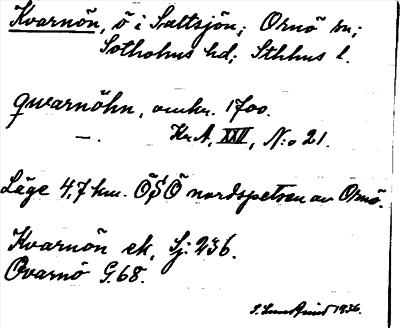 Kvarnön, ö i Saltsjön; Ornö sn;
Sotholms hd; Sthlms l.
qwarnöhn, omkr. 1700.
—. Kr.A, XXII, N:o 21.
Läge 4,7 km. ÖSÖ nordspetsen av Ornö.
Kvarnön ek, Sj. 236.
Qvarnö G.68.
S. 1936.